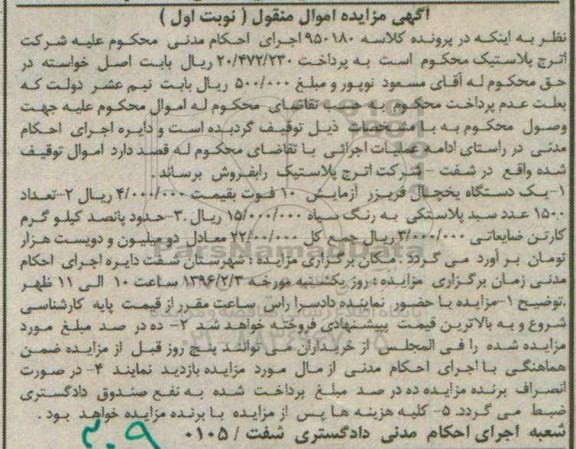 آگهی مزایده اموال منقول ( نوبت اول )
نظر به اینکه در پرونده کلاسه ۹۵۰۱۸۰ اجرای احکام مدنی محکوم علیه شرکت
اترج پلاستیک محکوم است به پرداخت ۲۰/۴۷۲/۲۳۰ ریال بابت اصل خواسته در
حق محکوم له آقای مسعود نوپور و مبلغ ۵۰۰/۰۰۰ ریال بابت نیم عشر دولت که
بعلت عدم پرداخت محکوم به حسب تقاضای محکوم له اموال محکوم علیه جهت
وصول محکوم به با مشخصات ذیل توقیف گردیده است و دایره اجرای احکام
مدنی در راستای ادامه عملیات اجرائی با تقاضای محکوم له قصد دارد اموال توقیف
شده واقع در شفت – شرکت اترج پلاستیک رابفروش برساند :
۱–یک دستگاه یخچال فریزر آزمایش ۱۰ فوت بقیمت ۴/۰۰۰/۰۰۰ ریال ۲–تعداد
۱۵۰۰ عدد سبد پلاستکی به رنگ سیاه ۱۵/۰۰۰/۰۰۰ ریال .۳–حدود پانصد کیلو گرم
کارتن ضایعاتی ۳/۰۰۰/۰۰۰ ریال جمع کل ۲۲/۰۰/۰۰۰ معادل دو میلیون و دویست هزار
تومان بر آورد می گردد .مکان برگزاری مزایده : شهرستان شفت دایره اجرای احکام
مدنی زمان برگزاری مزایده : روز یکشنبه مورخه ۱۳۹۶/۲/۳ ساعت ۱۰ الی ۱۱ ظهر
.توضیح ۱–مزایده با حضور نماینده دادسرا راس ساعت مقرر از قیمت پایه کارشناسی
شروع و به بالاترین قیمت پیشنهادی فروخته خواهد شد ۲– ده در صد مبلغ مورد
مزایده شده را فی المجلس از خریداران می توانند پنج روز قبل از مزایده ضمن
هماهنگی با اجرای احکام مدنی از مال مورد مزایده بازدید نمایند ۴– در صورت
انصراف برنده مزایده ده در صد مبلغ پرداخت شده به نفع صندوق دادگستری
ضبط می گردد. ۵– کلیه هزینه ها پس از مزایده با برنده مزایده خواهد بود .
شعبه اجرای احکام مدنی دادگستری شفت / ۰۱۰۵
۳۰۹